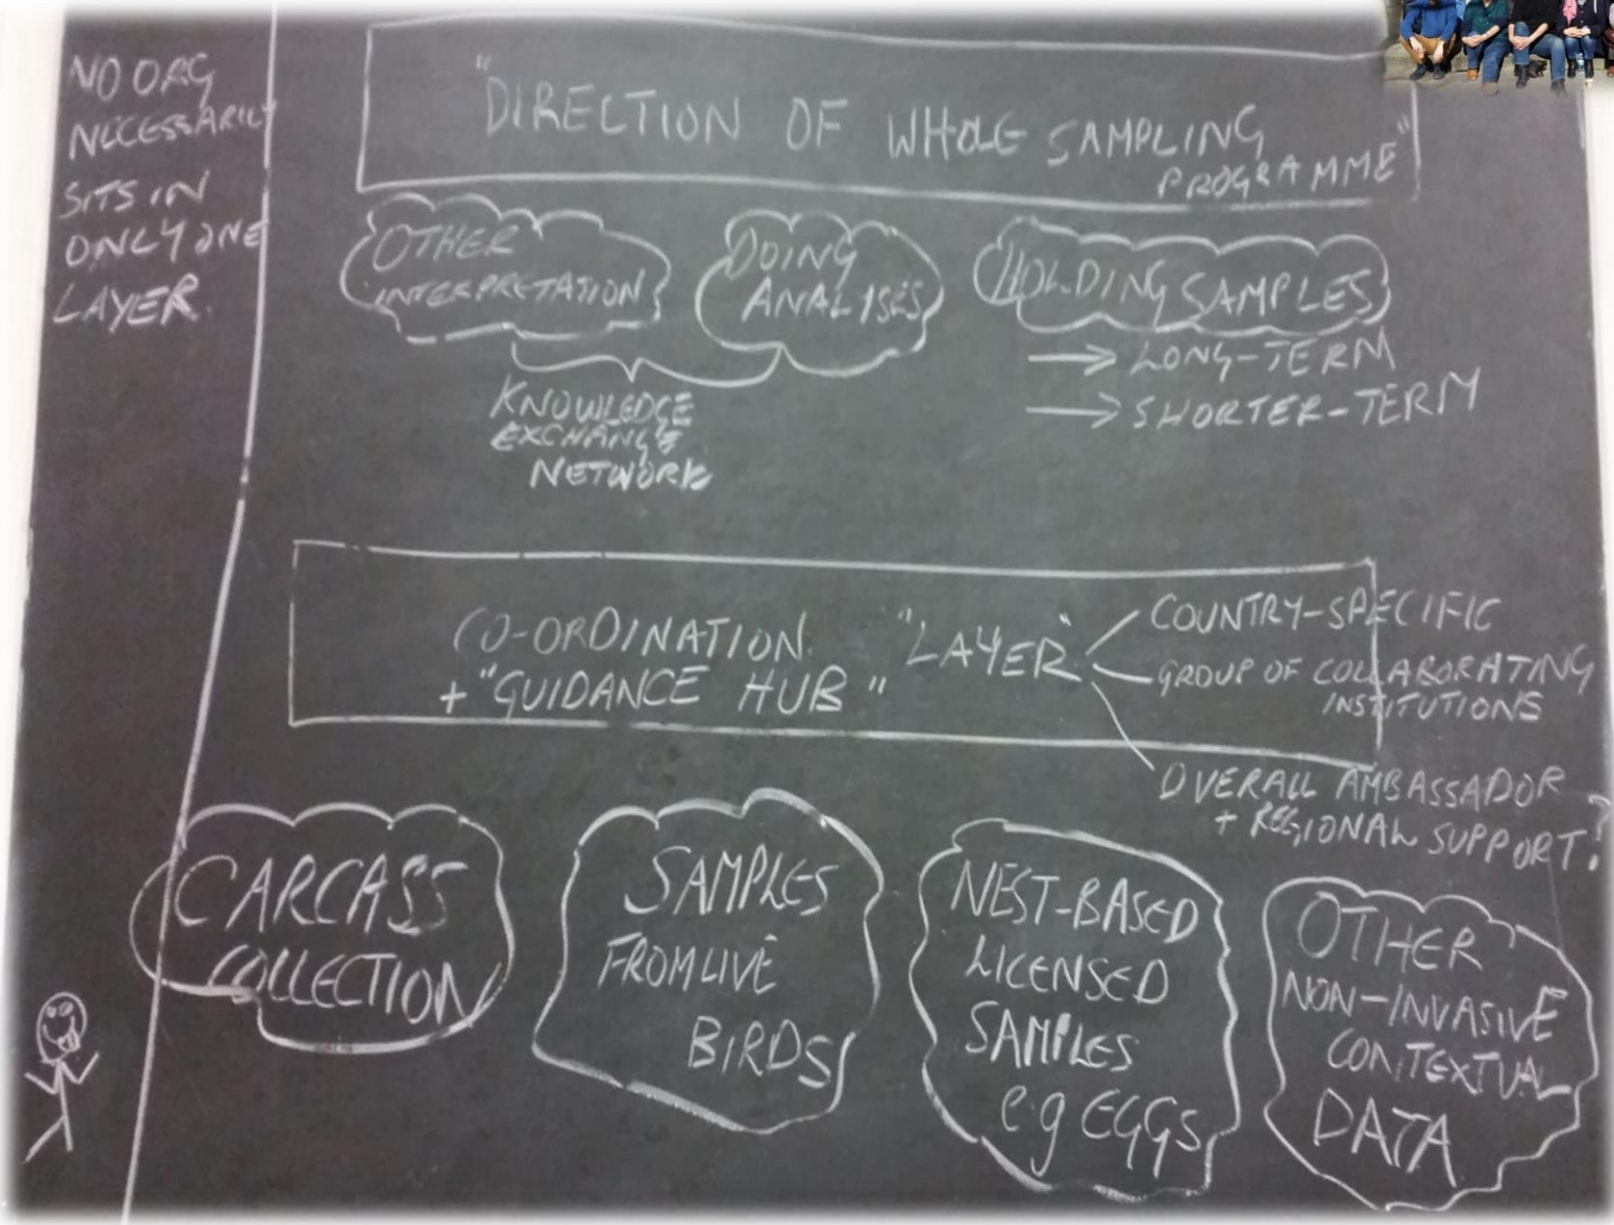 NO ORG
NECESSARILY
SITS IN
ONLY ONE
LAYER.
"DIRECTION OF WHOLE SAMPLING
PROGRAMME"
OTHER
INTERPRETATION
DOING
ANALYSES
HOLDING SAMPLES
→ LONG-TERM
→ SHORTER-TERM
KNOWLEDGE
EXCHANGE
NETWORK
CO-ORDINATION "LAYER"
+ "GUIDANCE HUB"
COUNTRY-SPECIFIC
GROUP OF COLLABORATING
INSTITUTIONS
OVERALL AMBASSADOR
+ REGIONAL SUPPORT?
CARCASS
COLLECTION
SAMPLES
FROM LIVE
BIRDS
NEST-BASED
LICENSED
SAMPLES
e.g EGGS
OTHER
NON-INVASIVE
CONTEXTUAL
DATA